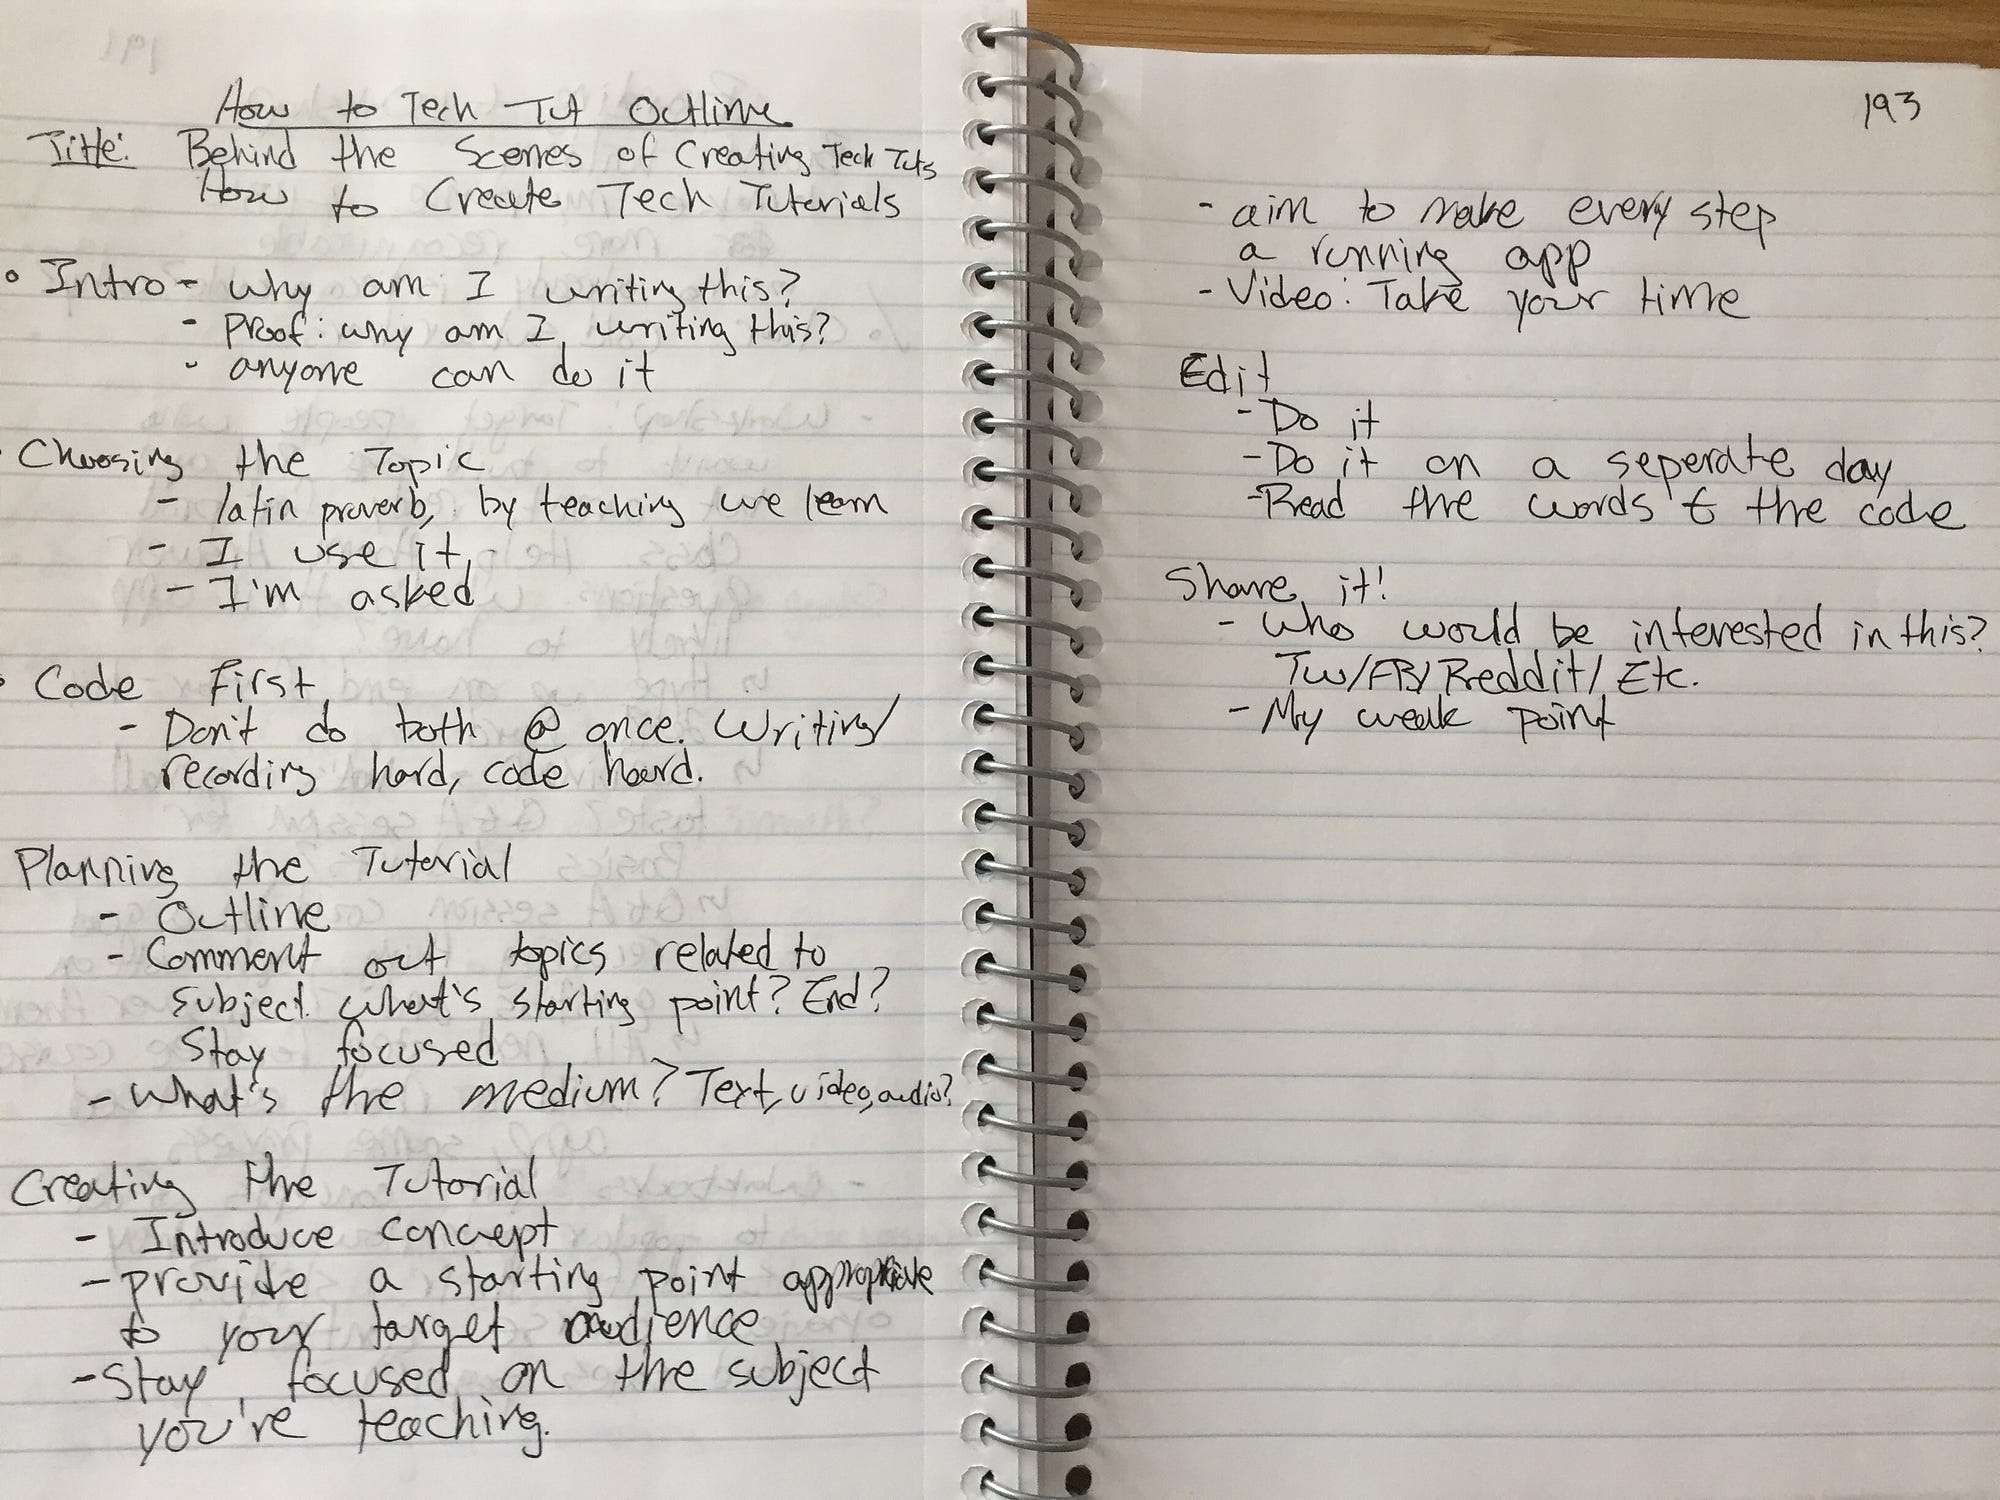 How to Tech Tut Outline
Title: Behind the Scenes of Creating Tech Tuts
How to Create Tech Tutorials
• Intro - why am I writing this?
- Proof: why am I writing this?
- anyone can do it
• Choosing the Topic
- latin proverb, by teaching we learn
- I use it
- I'm asked
• Code First
- Don't do both @ once. Writing/
recording hard, code hard.
Planning the Tutorial
- Outline
- Comment out topics related to
subject. What's starting point? End?
Stay focused
- What's the medium? Text, video, audio?
Creating the Tutorial
- Introduce concept
- provide a starting point appropriate
to your target audience
- Stay focused on the subject
you're teaching.
193
- aim to make every step
a running app
- Video: Take your time
Edit
- Do it
- Do it on a seperate day
- Read the words & the code
Share it!
- Who would be interested in this?
Tw/FB/Reddit/Etc.
- My weak point